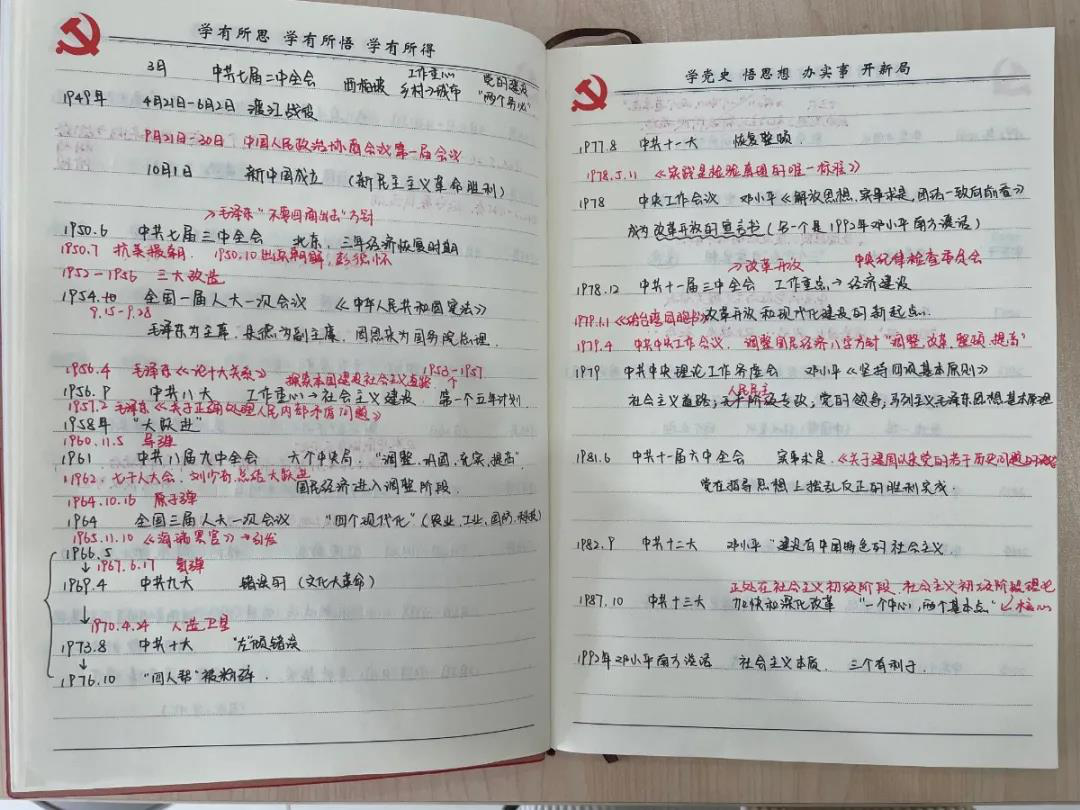 学有所思 学有所悟 学有所得
3月 中共七届二中全会 西柏坡 工作重心 乡村→城市 党的建设 "两个务必"
1949年 4月21日-6月2日 渡江战役
9月21日-30日 中国人民政治协商会议第一届会议
10月1日 新中国成立 (新民主主义革命胜利)
→毛泽东"不要四面出击"方针
1950.6 中共七届三中全会 北京, 三年经济恢复时期
1950.7 抗美援朝. 1950.10出兵朝鲜, 彭德怀
1953-1956 三大改造
1954.10 全国一届人大一次会议 《中华人民共和国宪法》
9.15-9.28
毛泽东为主席, 朱德为副主席, 周恩来为国务院总理.
1956.4 毛泽东《论十大关系》 探索本国建设社会主义道路. 1953-1957
1956.9 中共八大 工作重心→社会主义建设. 第一个五年计划
1957.2 毛泽东《关于正确处理人民内部矛盾问题》
1958年 "大跃进"
1960.11.5 导弹
1961 中共八届九中全会 六个中央局. "调整、巩固、充实、提高"
1962. 七千人大会. 刘少奇总结大跃进
国民经济进入调整阶段.
1964.10.16 原子弹
1964 全国三届人大一次会议 "四个现代化" (农业,工业,国防,科技)
1965.11.10 《海瑞罢官》→引发
1966.5
↓ 1967.6.17 氢弹
1969.4 中共九大 错误的 (文化大革命)
↓ 1970.4.24 人造卫星
1973.8 中共十大 "左"倾错误
↓
1976.10 "四人帮"被粉碎.
学党史 悟思想 办实事 开新局
1977.8 中共十一大 恢复整顿.
1978.5.11 《实践是检验真理的唯一标准》
1978 中央工作会议 邓小平《解放思想,实事求是,团结一致向前看》
成为改革开放的宣言书 (另一个是1992年邓小平南方谈话)
→改革开放 中央纪律检查委员会
1978.12 中共十一届三中全会 工作重点→经济建设
1979.1.1《告台湾同胞书》改革开放和现代化建设的新起点.
1979.4 中共中央工作会议. 调整国民经济八字方针"调整,改革,整顿,提高"
1979 中共中央理论工作务虚会 邓小平《坚持四项基本原则》
人民民主
社会主义道路; 无产阶级专政; 党的领导; 马列主义毛泽东思想基本原理
1981.6 中共十一届六中全会 实事求是. 《关于建国以来党的若干历史问题的决议》
党在指导思想上拨乱反正的胜利完成.
1982.9 中共十二大 邓小平"建设有中国特色的社会主义.
正处在社会主义初级阶段. 社会主义初级阶段理论
1987.10 中共十三大 加快和深化改革 "一个中心,两个基本点" ↙核心
1992年邓小平南方谈话 社会主义本质. 三个有利于.